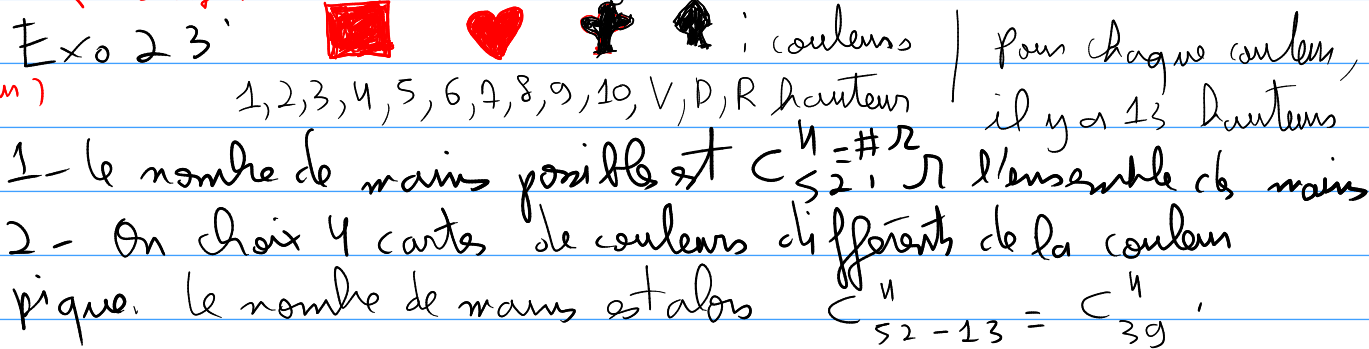 Exo 23 : couleurs | Pour chaque couleur,
1, 2, 3, 4, 5, 6, 7, 8, 9, 10, V, D, R hauteur | il y a 13 hauteurs
1- le nombre de mains possibles est C_52^4 = #Ω, Ω l'ensemble des mains
2- On choix 4 cartes de couleurs différents de la couleur
pique. le nombre de mains est alors C_{52-13}^4 = C_39^4.